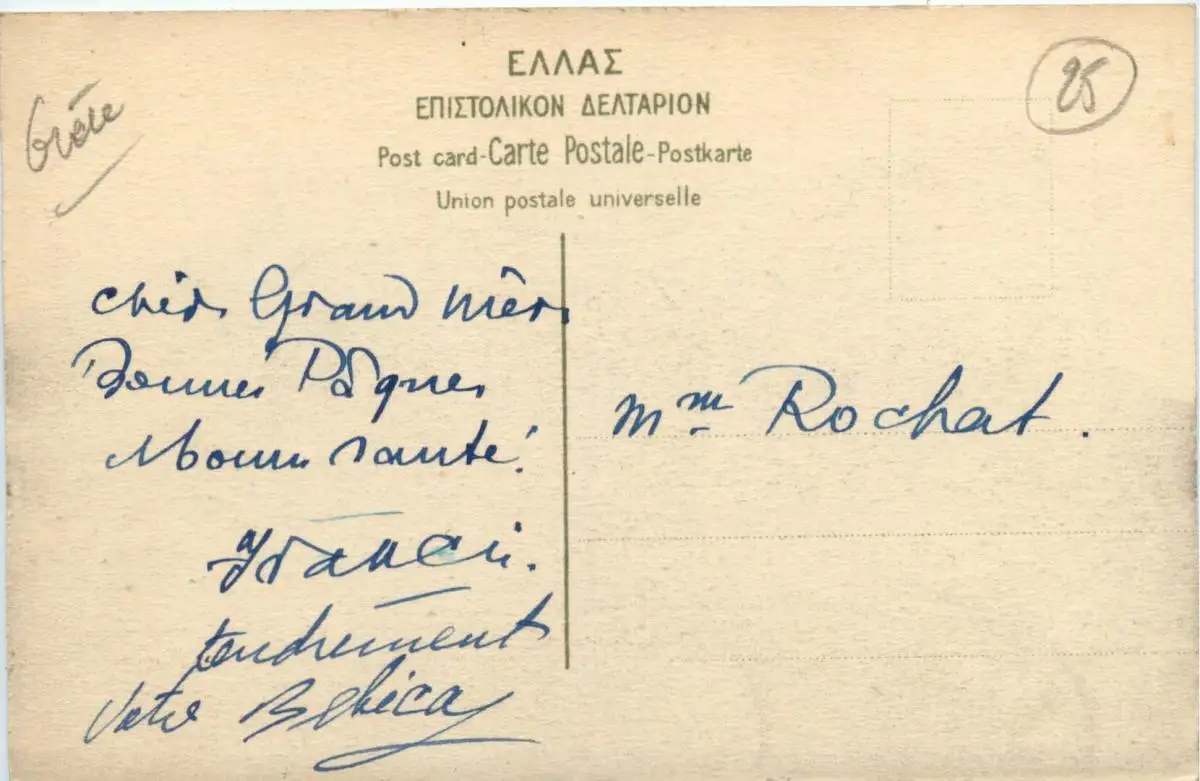 Grèce
25
ΕΛΛΑΣ
ΕΠΙΣΤΟΛΙΚΟΝ ΔΕΛΤΑΡΙΟΝ
Post card-Carte Postale-Postkarte
Union postale universelle
chère Grand Mère
Bonnes Pâques
Bonne santé!
Francis.
tendrement
Votre
Mme Rochat.